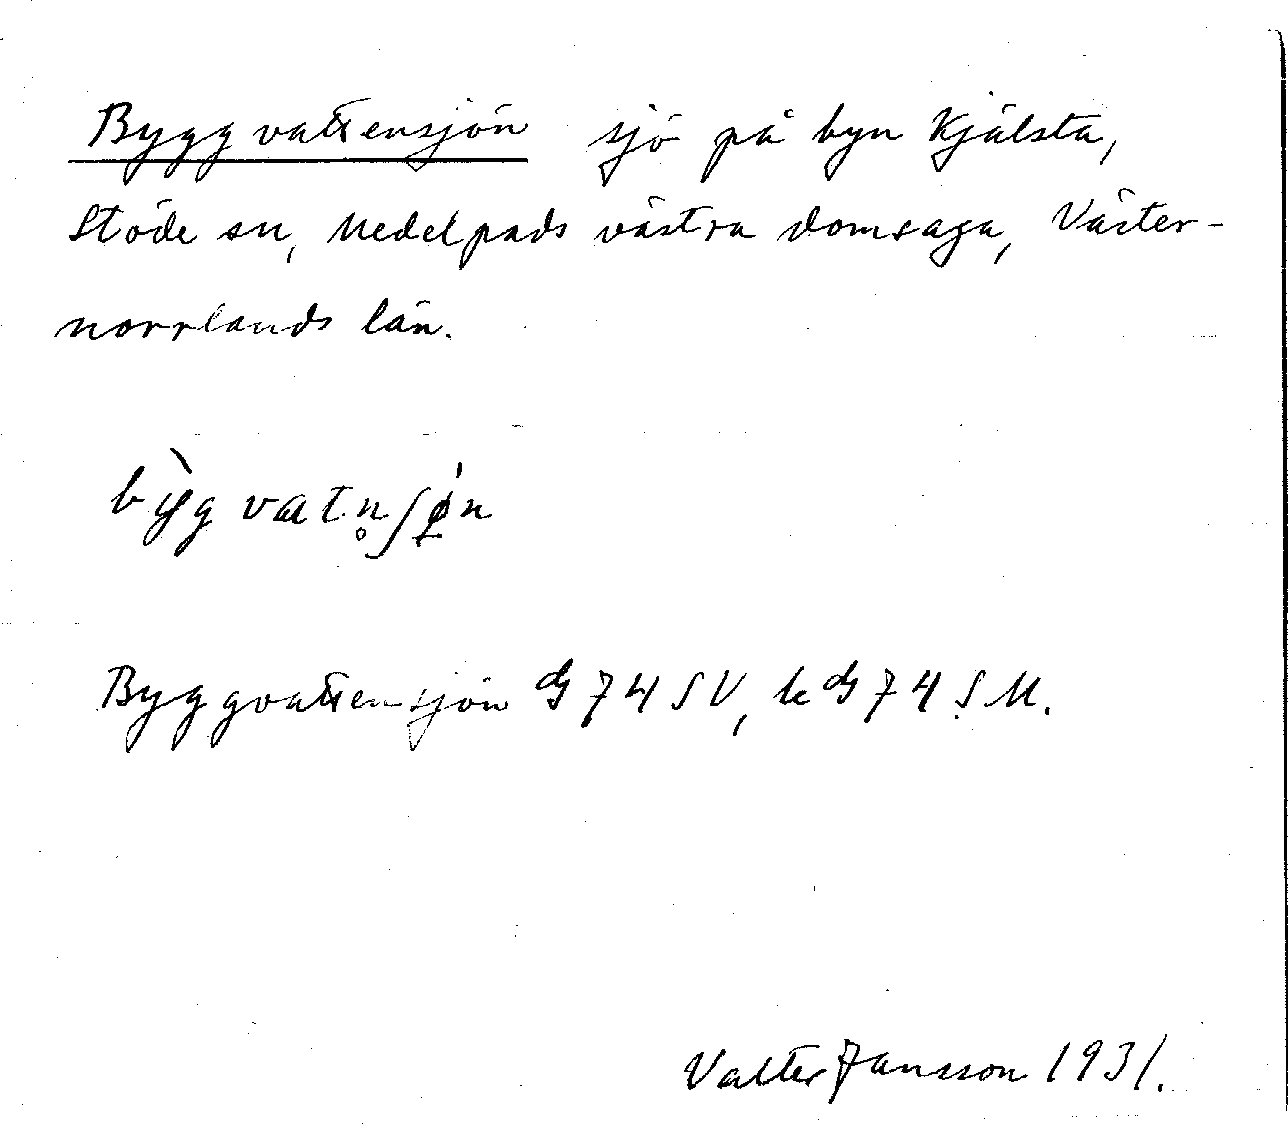 Byggvattensjön sjö på byn Kjälsta,
Stöde sn, Medelpads västra domsaga, Väster-
norrlands län.
bỳgvatn̥ʃǿ̜n
Byggvattensjön G 74 SV, k G 74 S M.
Valter Jansson 1931.